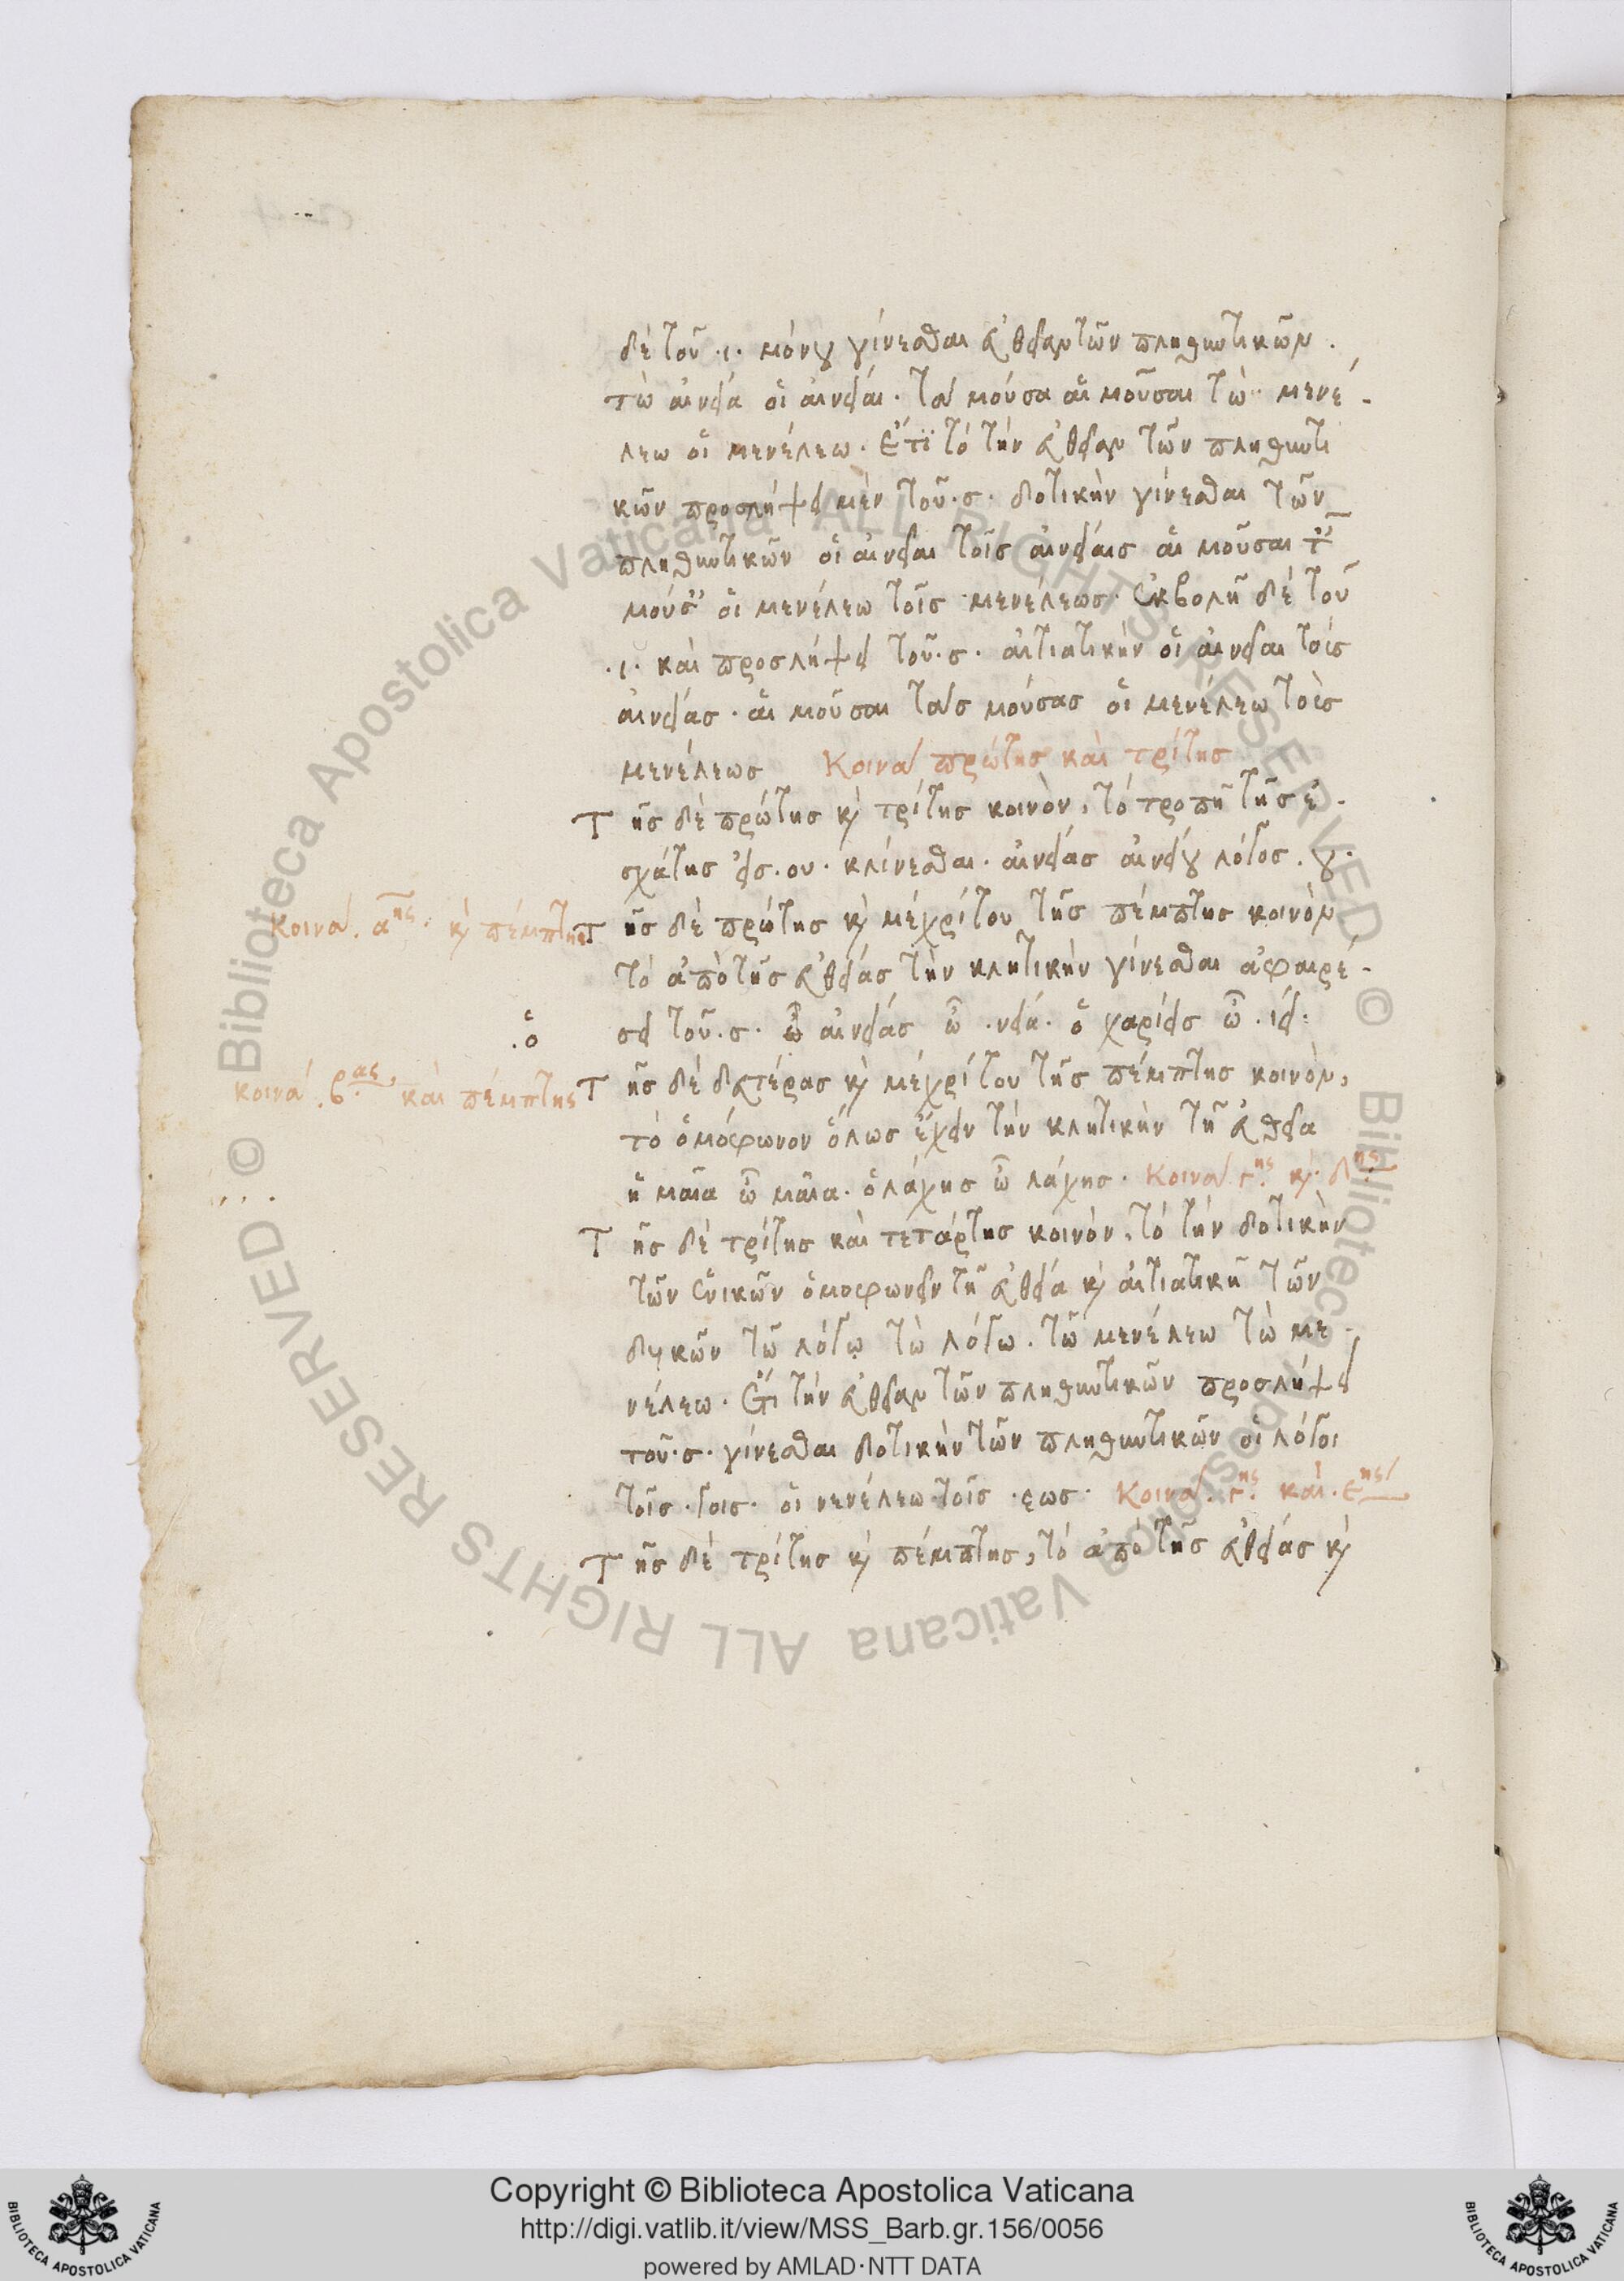 δὲ τοῦ .ι. μόνου γίνεσθαι εὐθεῖαν τῶν πληθυντικῶν.
τὼ αἰνεία οἱ αἰνεῖαι. τὰ μούσα αἱ μοῦσαι τὼ μενέ-
λεω οἱ μενέλεω. Ἔτι τὸ τὴν εὐθεῖαν τῶν πληθυντι
κῶν προσλήψει μὲν τοῦ .σ. δοτικὴν γίνεσθαι τῶν
πληθυντικῶν οἱ αἰνεῖαι τοῖς αἰνείαις αἱ μοῦσαι ταῖς
μούσαις οἱ μενέλεω τοῖς μενέλεως. ἐκβολῇ δὲ τοῦ
.ι. καὶ προσλήψει τοῦ .σ. αἰτιατικὴν οἱ αἰνεῖαι τοὺς
αἰνείας. αἱ μοῦσαι τὰς μούσας οἱ μενέλεω τοὺς
μενέλεως Κοινὰ πρώτης καὶ τρίτης
Τῆς δὲ πρώτης καὶ τρίτης κοινὸν, τὸ τροπῇ τῆς ἐ-
σχάτης εἰς .ου. κλίνεσθαι. αἰνείας αἰνείου λόγος .ου.
Κοινὰ .αης. καὶ πέμπτης
Τῆς δὲ πρώτης καὶ μέχρί του τῆς πέμπτης κοινὸν
τὸ ἀπὸ τῆς εὐθείας τὴν κλητικὴν γίνεσθαι ἀφαιρέ-
.ὁ
σει τοῦ .σ. ὁ αἰνείας ὦ .νεία. ὁ χαρίεις ὦ .ίει:
κοινὰ .βας. καὶ πέμπτης
Τῆς δὲ δευτέρας καὶ μέχρί του τῆς πέμπτης κοινὸν,
τὸ ὁμόφωνον ὅλως ἔχειν τὴν κλητικὴν τῇ εὐθεία
ἡ μαῖα ὦ μαῖα. ὁ λάχης ὦ λάχης. Κοινὰ γης. καὶ δης.
Τῆς δὲ τρίτης καὶ τετάρτης κοινὸν, τὸ τὴν δοτικὴν
τῶν ἑνικῶν ὁμοφωνεῖν τῇ εὐθεία καὶ αἰτιατικῇ τῶν
δυικῶν τῶ λόγῳ τὼ λόγω. τῶ μενέλεω τὼ με-
νέλεω. Ἔτι τὴν εὐθεῖαν τῶν πληθυντικῶν προσλήψει
τοῦ .σ. γίνεσθαι δοτικὴν τῶν πληθυντικῶν οἱ λόγοι
τοῖς .γοις. οἱ νενέλεω τοῖς .εως. Κοινὰ .γης. καὶ .εης
Τῆς δὲ τρίτης καὶ πέμπτης, τὸ ἀπὸ τῆς εὐθείας καὶ
Copyright © Biblioteca Apostolica Vaticana
http://digi.vatlib.it/view/MSS_Barb.gr.156/0056
powered by AMLAD·NTT DATA
BIBLIOTECA APOSTOLICA VATICANA
BIBLIOTECA APOSTOLICA VATICANA
© Biblioteca Apostolica Vaticana ALL RIGHTS RESERVED
© Biblioteca Apostolica Vaticana ALL RIGHTS RESERVED